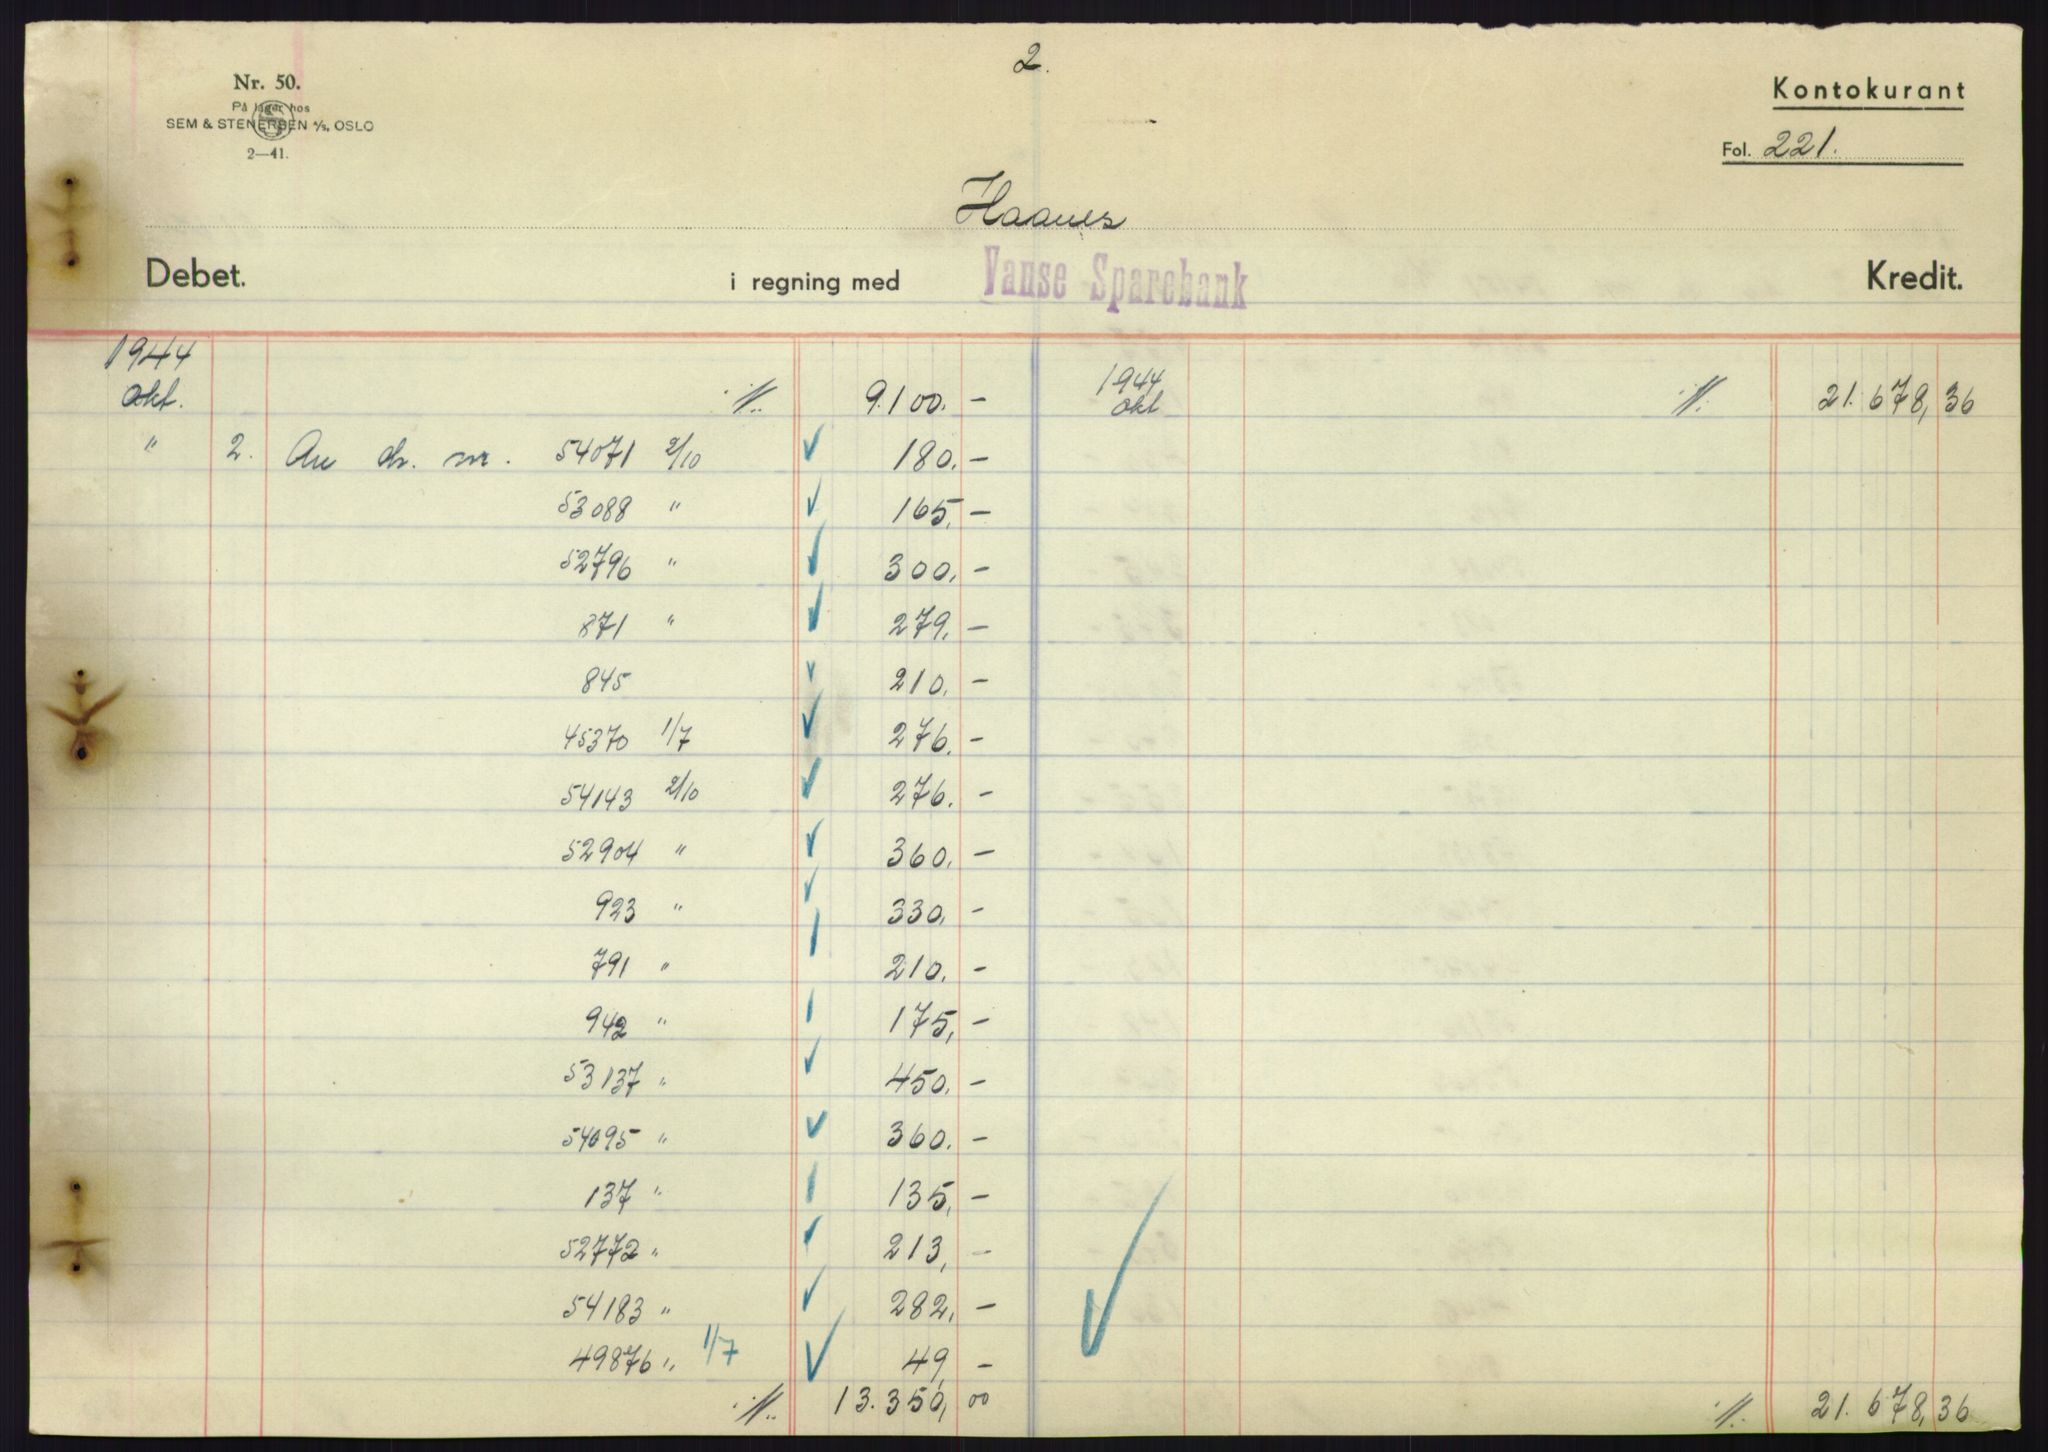 2.
Nr. 50.
På lager hos
SEM & STENERSEN A/S, OSLO
2—41.
Kontokurant
Fol. 221.
Haanes
Debet. i regning med Vanse Sparebank Kredit.
1944
Okt. 9.100. — 1944 Okt 21.678,36
" 2. An ch. nr. 54071 2/10 180. —
53088 " 165, —
52796 " 300, —
871 " 279, —
845 210, —
45370 1/7 276. —
54143 2/10 276. —
52904 " 360, —
923 " 330, —
791 " 210. —
942 " 175, —
53137 " 450. —
54095 " 360. —
137 " 135, —
52772 " 213, —
54183 " 282, —
49876 " 1/7 49, —
13.350,00 21.678,36